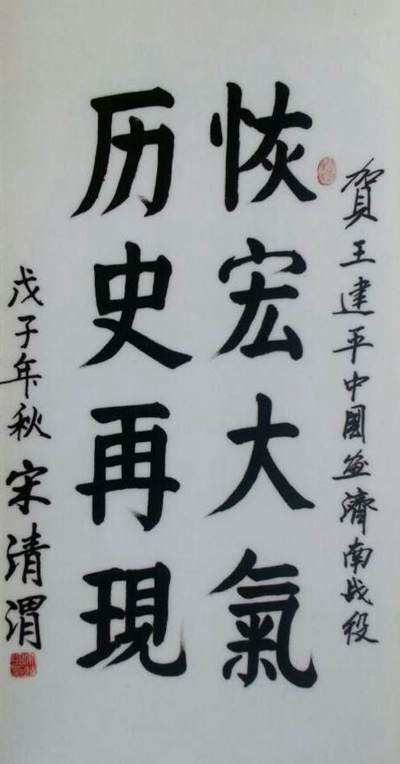 賀王建平中國画濟南战役
恢宏大氣
历史再現
戊子年秋宋清渭